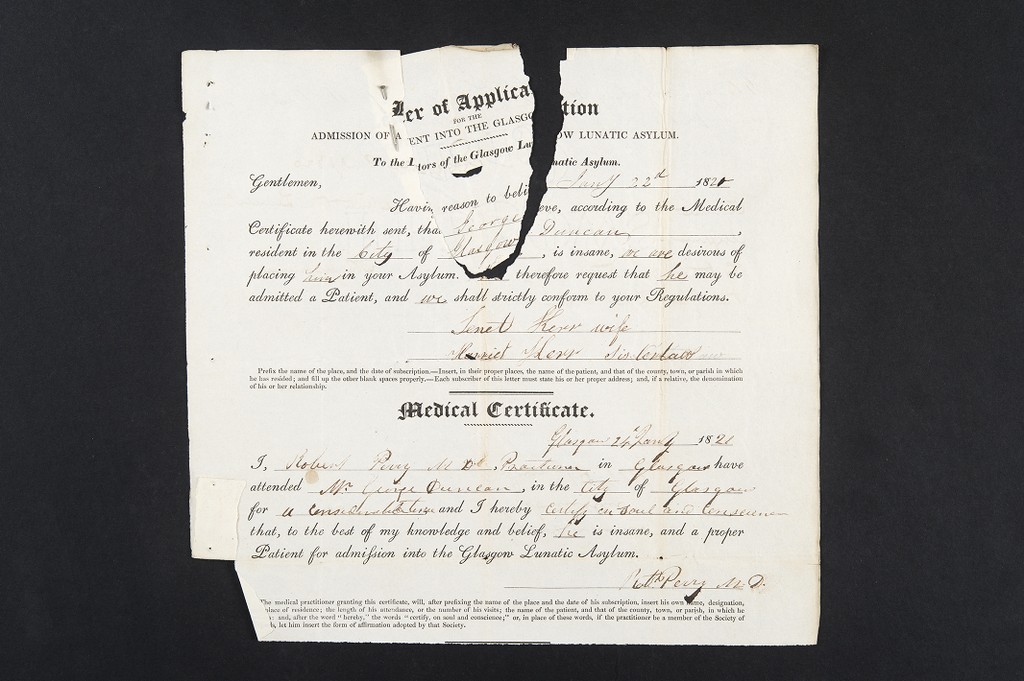 ter of Applica tion
FOR THE
ADMISSION OF A ENT INTO THE GLASGO OW LUNATIC ASYLUM.
To the tors of the Glasgow Lu natic Asylum.
Gentlemen, Jany 22d 1821
Havin reason to beli eve, according to the Medical
Certificate herewith sent, tha George Duncan,
resident in the City of Glasgow, is insane, we are desirous of
placing him in your Asylum. therefore request that he may be
admitted a Patient, and we shall strictly conform to your Regulations.
Jenet Kerr wife
Harriet Kerr Sister
Prefix the name of the place, and the date of subscription.—Insert, in their proper places, the name of the patient, and that of the county, town, or parish in which
he has resided; and fill up the other blank spaces properly.—Each subscriber of this letter must state his or her proper address; and, if a relative, the denomination
of his or her relationship.
Medical Certificate.
Glasgow 24 Jany 1821
I, Robert Perry M D Practitioner in Glasgow have
attended Mr George Duncan, in the City of Glasgow
for a considerable time and I hereby certify on soul and conscience
that, to the best of my knowledge and belief, he is insane, and a proper
Patient for admiſsion into the Glasgow Lunatic Asylum.
Robt Perry M.D.
The medical practitioner granting this certificate, will, after prefixing the name of the place and the date of his subscription, insert his own name, designation,
place of residence; the length of his attendance, or the number of his visits; the name of the patient, and that of the county, town, or parish, in which
: and, after the word "hereby," the words "certify, on soul and conscience;" or, in place of these words, if the practitioner be a member of the Society of
s, let him insert the form of affirmation adopted by that Society.